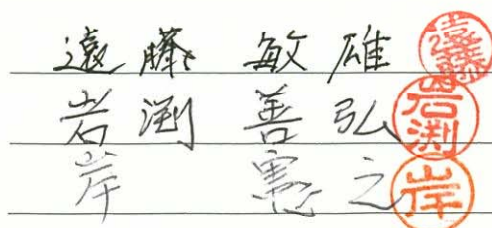 遠藤 敏雄 遠藤
岩渕 善弘 岩渕
岸 憲之 岸